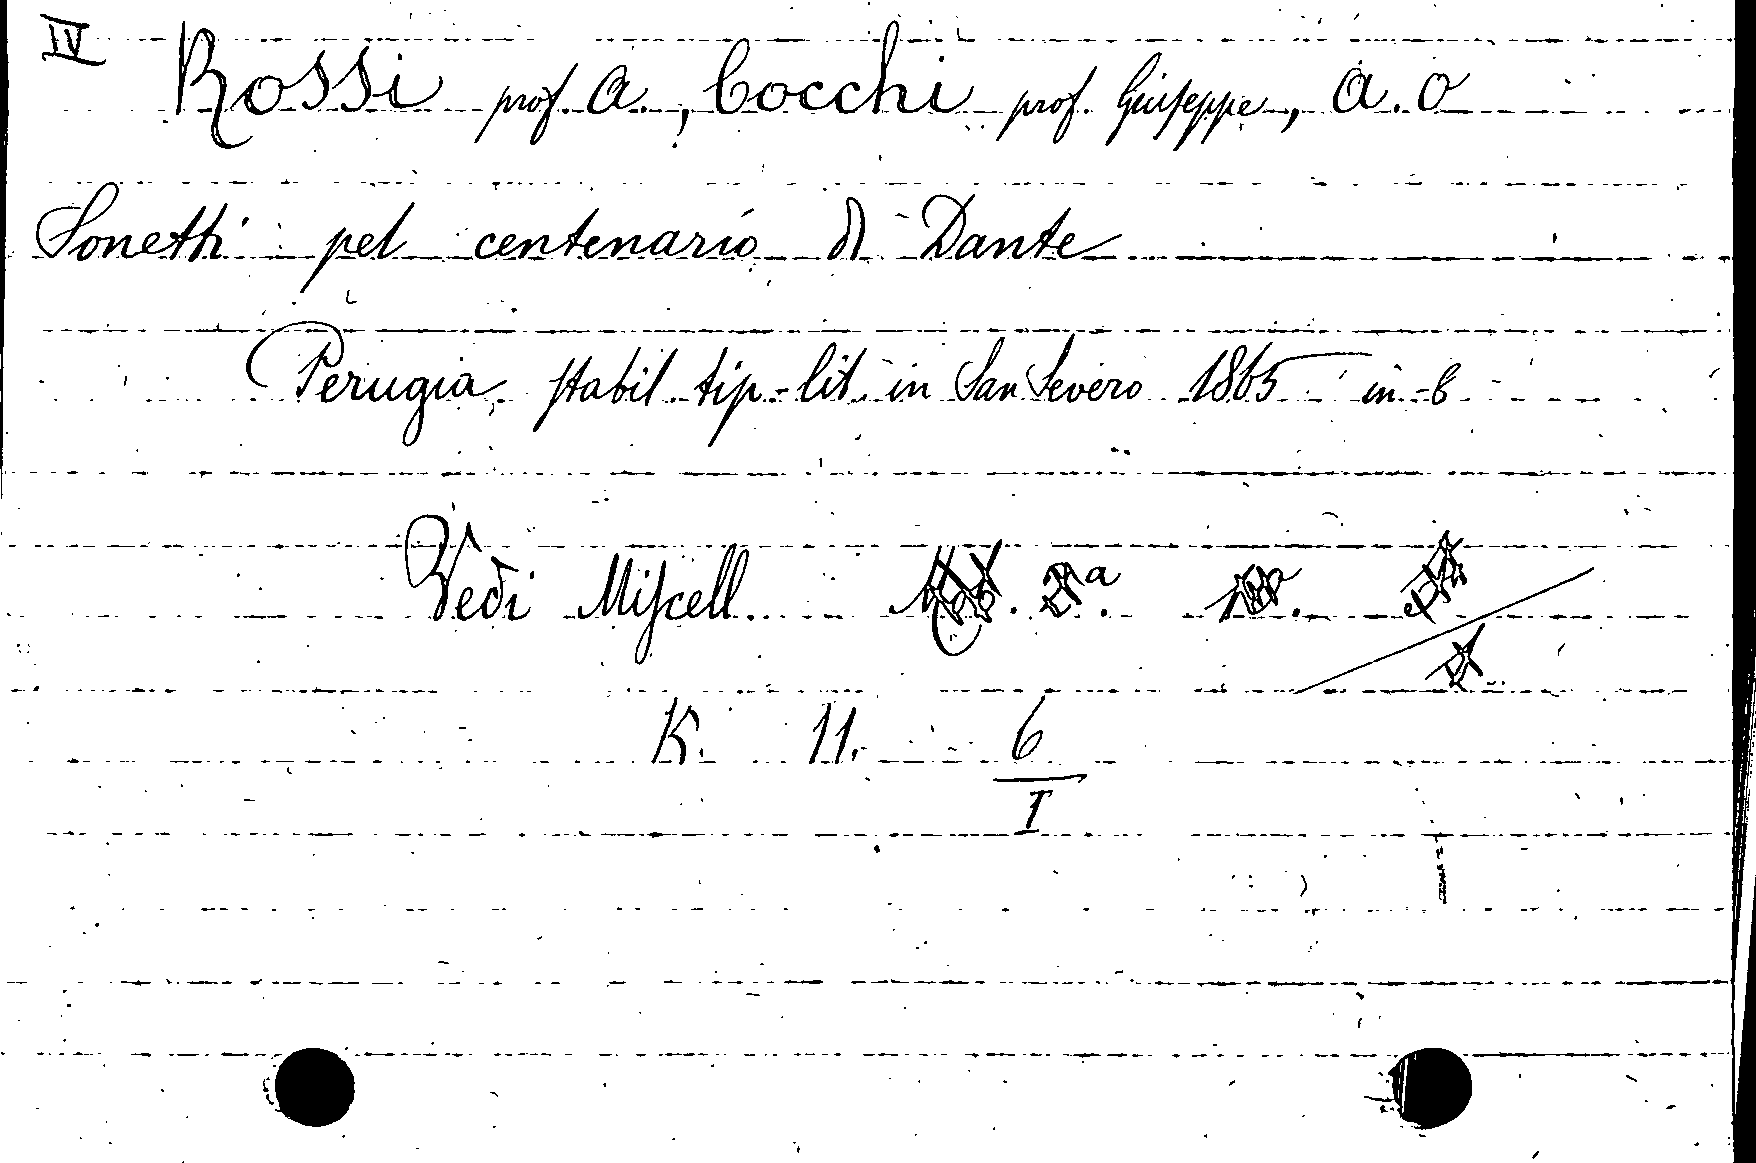 IV
Rossi prof. A., Cocchi prof. Giuseppe, A. O
Sonetti pel centenario di Dante
Perugia, stabil. tip-lit. in San Severo 1865 in-8
Vedi Miscell.
K. 11. 6
I